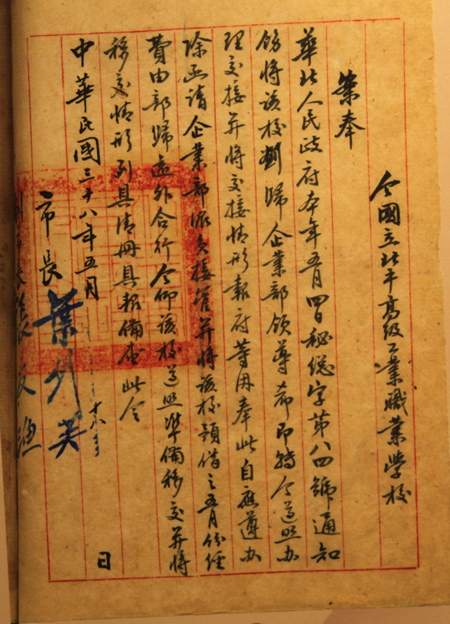 令國立北平高級工業職業學校
案奉
華北人民政府本年五月四日秘總字第八四號通知
飭將該校劃歸企業部領導希即轉令遵照辦
理交接并將交接情形報府等因奉此自應遵辦
除函請企業部派員接管并將該校預借之五月份經
費由部歸還外合行令仰該校遵照準備移交并將
移交情形列具清冊具報備查此令
中華民國三十八年五月 日
市長 葉劍英